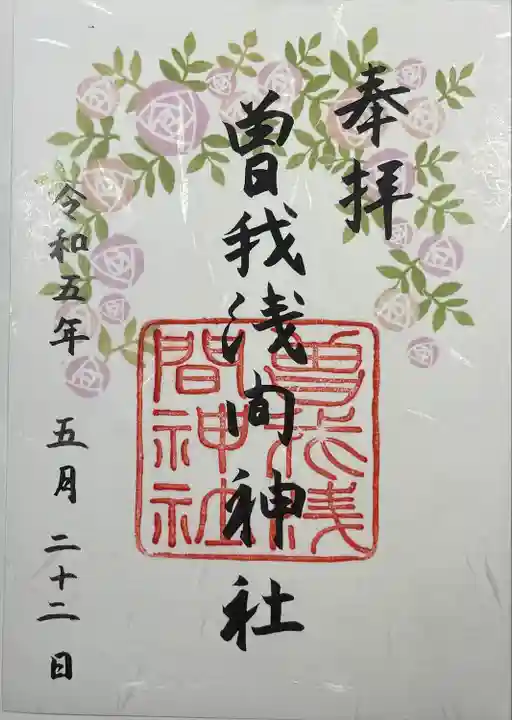 奉拝
曽我浅間神社
曽我浅
間神社
令和五年 五月二十二日